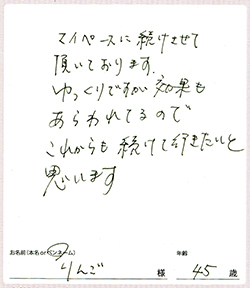 マイペースに続けさせて
頂いております.
ゆっくりですが効果も
あらわれてるので
これからも続けて行きたいと
思います
お名前(本名orペンネーム) 年齢
りんご 様 45 歳